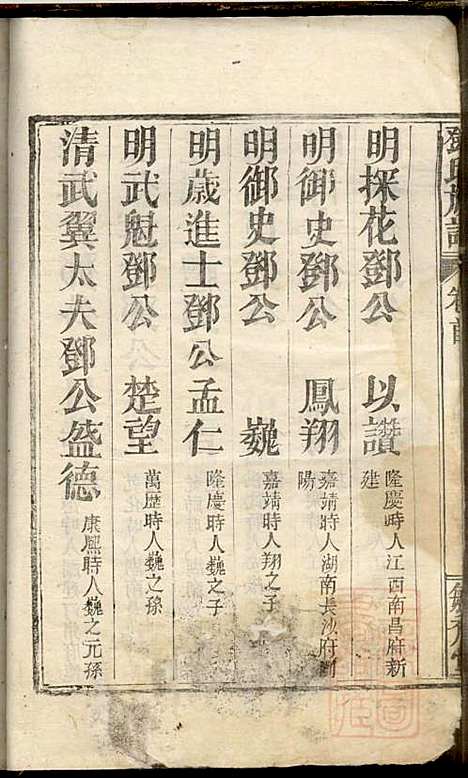 鄧氏族譜 卷首
明探花鄧公 以讚 隆慶時人江西南昌府新建
明御史鄧公 鳳翔 嘉靖時人湖南長沙府瀏陽
明御史鄧公 巍 嘉靖時人翔之子
明歲進士鄧公孟仁 隆慶時人巍之子
明武魁鄧公 楚望 萬歷時人巍之孫
清武翼太夫鄧公盛德 康熙時人巍之元孫